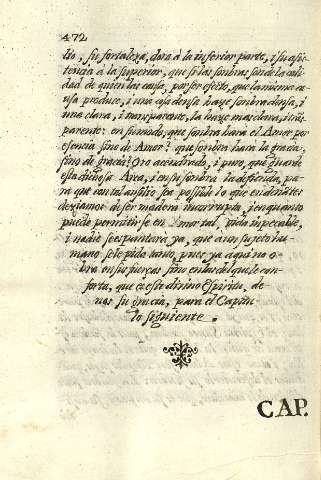 472
to, su fortaleza, dara à la inferior parte, i su asis-
tencia à la superior, que si las sombras son de la cali-
dad de quien las causa, por ser efecto, que la misma ca-
usa produce, i una cosa densa haze sombra densa, i
una clara, i transparente, la haze mas clara, i trãs-
parente: en sumado, que sombra harà el Amor por
esencia sino de Amor? que sombra harà la gracia,
sino de gracia? Oro acendrado, i puro, que guarde
esta dichosa Arca, i en su sombra la defienda, pa-
ra que con tal ausilio sea posible lo que
deziamos de ser madera incorrupta, i en quanto
puede permitirse en mortal, vida impecable,
i nadie se espantarà ya, que à un sujeto hu-
mano se le pida tanto, pues ya aqui no o-
bra en sus fuerças, sino en las del que le con-
forta, que es este divino Espiritu, de-
nos su gracia, para el Capitu-
lo siguiente.
CAP.